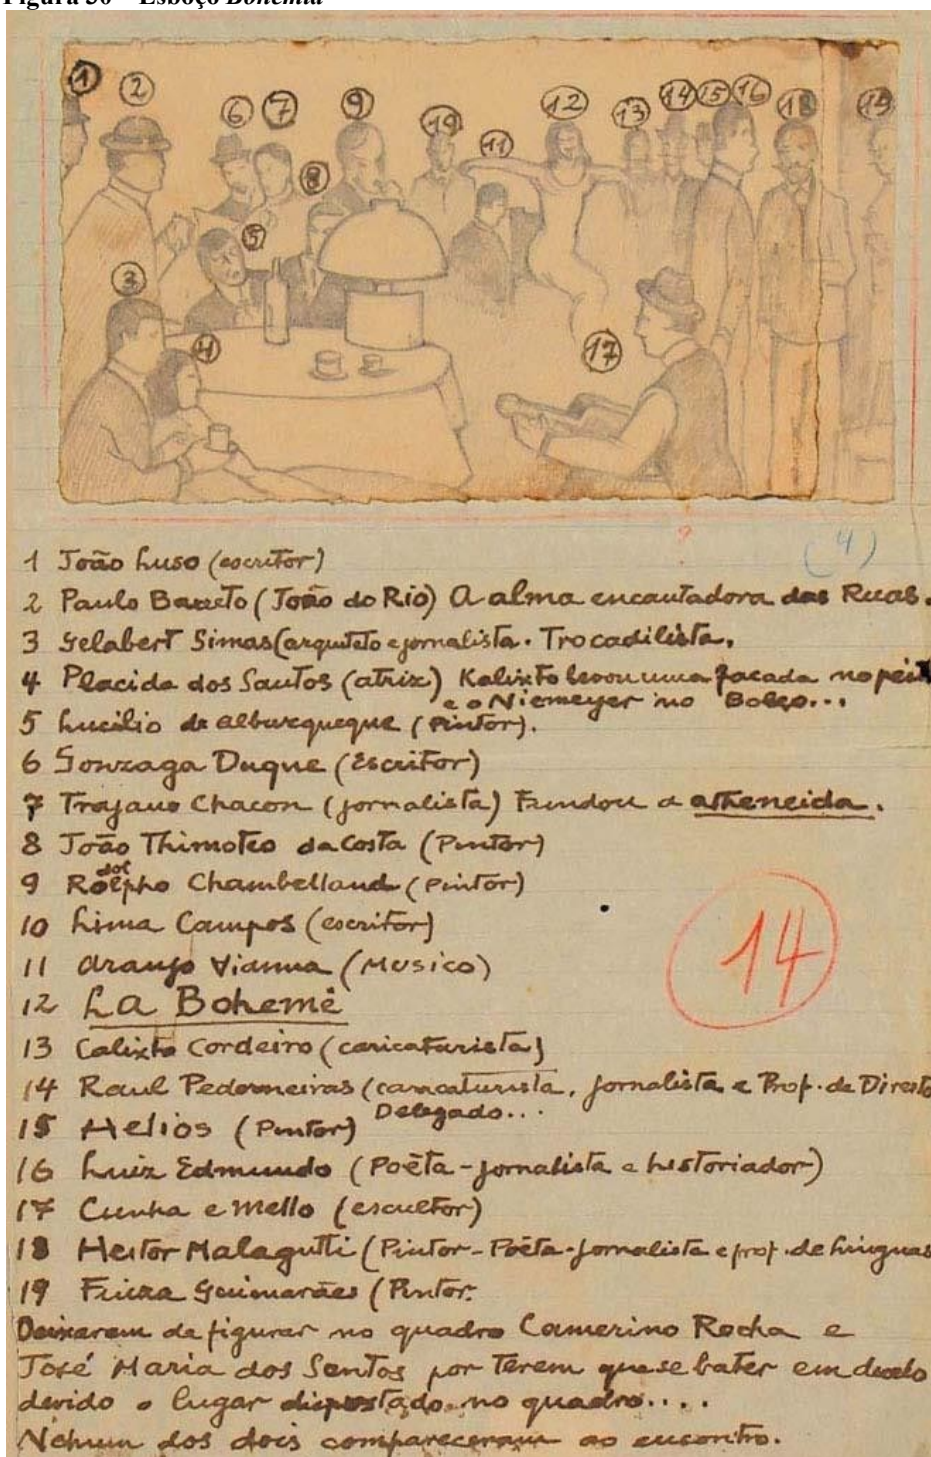 Figura 30 – Esboço Bohemia
1 2 6 7 9 10 11 12 13 14 15 16 18 19
8
5
3
4
17
(4)
1 João Luso (escritor)
2 Paulo Barreto (João do Rio) A alma encantadora das Ruas.
3 Gelabert Simas (arquiteto e jornalista. Trocadilista.
4 Placida dos Santos (atriz) Kalixto levou uma facada no peito
e o Niemeyer no Bolço...
5 Lucilio de Alburqueque (Pintor).
6 Gonzaga Duque (Escritor)
7 Trajano Chacon (jornalista) Fundou a atheneida.
8 João Thimoteo da Costa (Pintor)
9 Rodolpho Chambelland (Pintor)
10 Lima Campos (escritor)
11 Araujo Vianna (Musico)
12 La Bohemê
13 Calixto Cordeiro (caricaturista)
14 Raul Pederneiras (caricaturista, jornalista e Prof. de Direito
Delegado...
15 Helios (Pintor)
16 Luiz Edmundo (Poêta - jornalista e historiador)
17 Cunha e Mello (escultor)
18 Heitor Malagutti (Pintor - Poêta - jornalista e prof. de Linguas
19 Fiuza Guimarães (Pintor.
14
Deixaram de figurar no quadro Camerino Rocha e
José Maria dos Santos por terem que se bater em duelo
devido o lugar dispostado no quadro....
Nehum dos dois compareceram ao encontro.